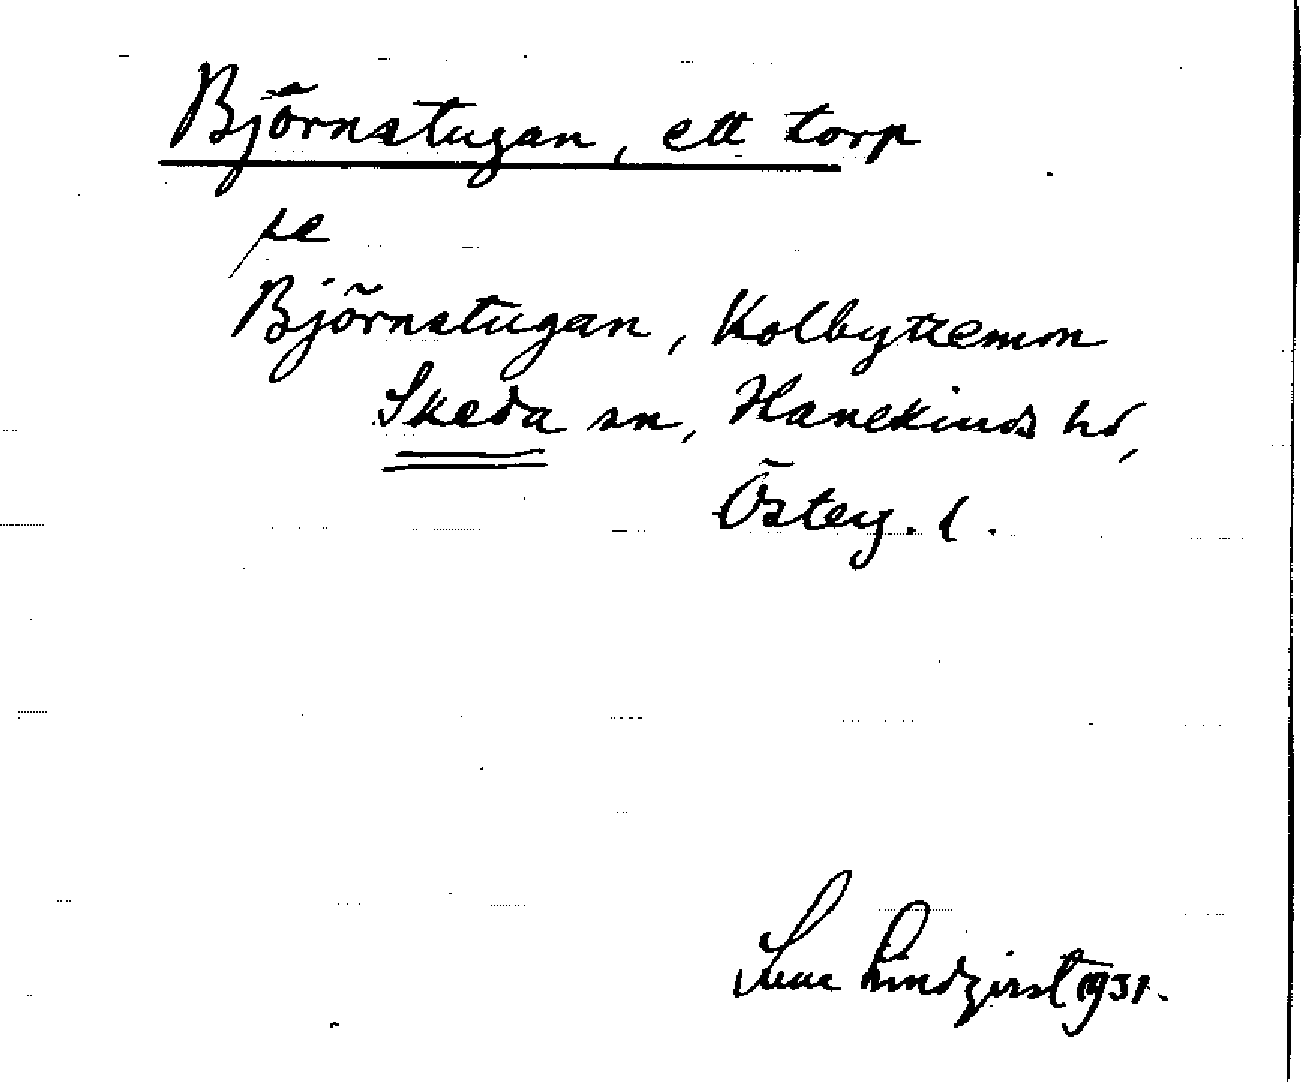 Björnstugan, ett torp
se
Björnstugan, Kolbyttemon
Skeda sn, Hanekinds hd,
Österg. l.
Sune Lindqvist 1931.